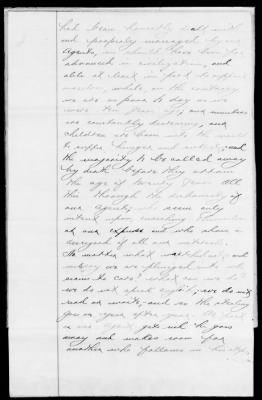 had been honestly dealt with
and properly managed by our
Agents, we should have been far
advanced in civilization, and
able at least in part to support
ourselves, while, on the contrary
we are as poor to day as we
were ten years ago, our numbers
are constantly decreasing, our
children are born into the world
to suffer hunger and want, and
the majority to be called away
by death before they attain
the age of twenty years. All
this through the
our agents, who seem only
intent upon enriching themselves
at our expense and who show a
disregard of all our interests.
No matter what
misery we are plunged into who
seems to care? What can we do?
we do not speak English, we do not
read or write, and so the stealing
goes on year after year. As soon
as one agent gets rich he goes
away and makes room for
another who follows in his steps.